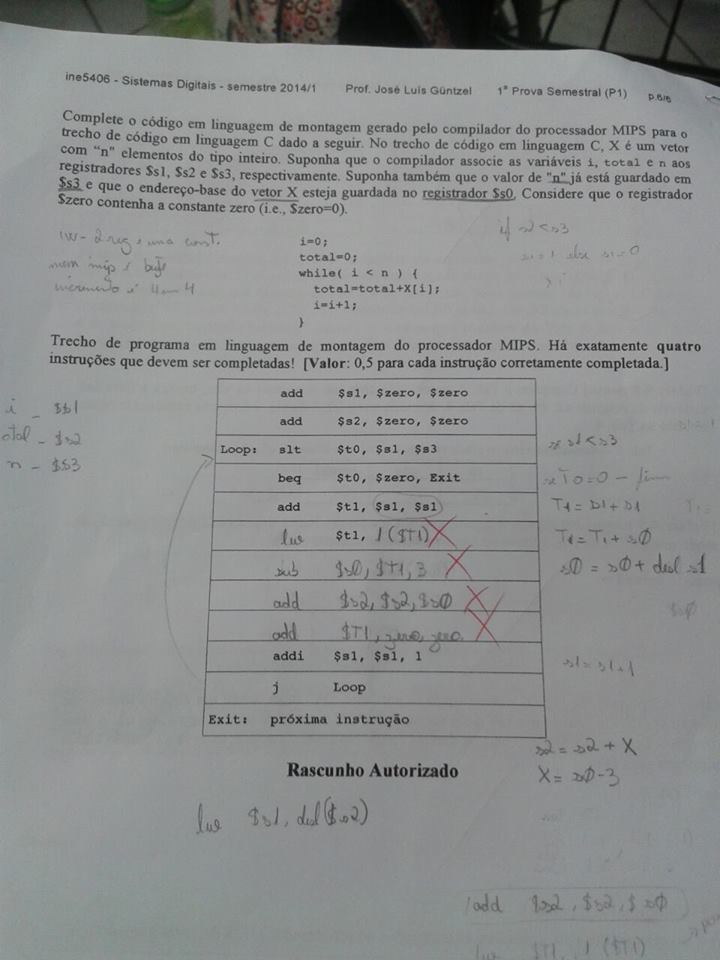 ine5406 - Sistemas Digitais - semestre 2014/1 Prof. José Luís Güntzel 1ª Prova Semestral (P1) p.6/6
Complete o código em linguagem de montagem gerado pelo compilador do processador MIPS para o
trecho de código em linguagem C dado a seguir. No trecho de código em linguagem C, X é um vetor
com "n" elementos do tipo inteiro. Suponha que o compilador associe as variáveis i, total e n aos
registradores $s1, $s2 e $s3, respectivamente. Suponha também que o valor de "n" já está guardado em
$s3 e que o endereço-base do vetor X esteja guardada no registrador $s0. Considere que o registrador
$zero contenha a constante zero (i.e., $zero=0).
lw - 2 reg e uma const.
mem mips é byte
incremento é 4 em 4
if s2 < s3
s1 = 1 else s1 = 0
i=0;
total=0;
while( i < n ) {
total=total+X[i];
i=i+1;
}
Trecho de programa em linguagem de montagem do processador MIPS. Há exatamente quatro
instruções que devem ser completadas! [Valor: 0,5 para cada instrução corretamente completada.]
i - $s1
otal - $s2
n - $s3
add $s1, $zero, $zero
add $s2, $zero, $zero
Loop: slt $t0, $s1, $s3
se s1 < s3
beq $t0, $zero, Exit
se T0 = 0 - fim
add $t1, $s1, $s1
T1 = s1 + s1
lw $t1, 1($T1)
T1 = T1 + s0
sub $s0, $T1, 3
s0 = s0 + desl s1
add $s2, $s2, $s0
$s0
add $T1, zero, zero
addi $s1, $s1, 1
s1 = s1 + 1
j Loop
Exit: próxima instrução
s2 = s2 + X
X = s0 - 3
Rascunho Autorizado
lw $s1, desl($s2)
add $s2, $s2, $s0
lw $T1, 1($T1)